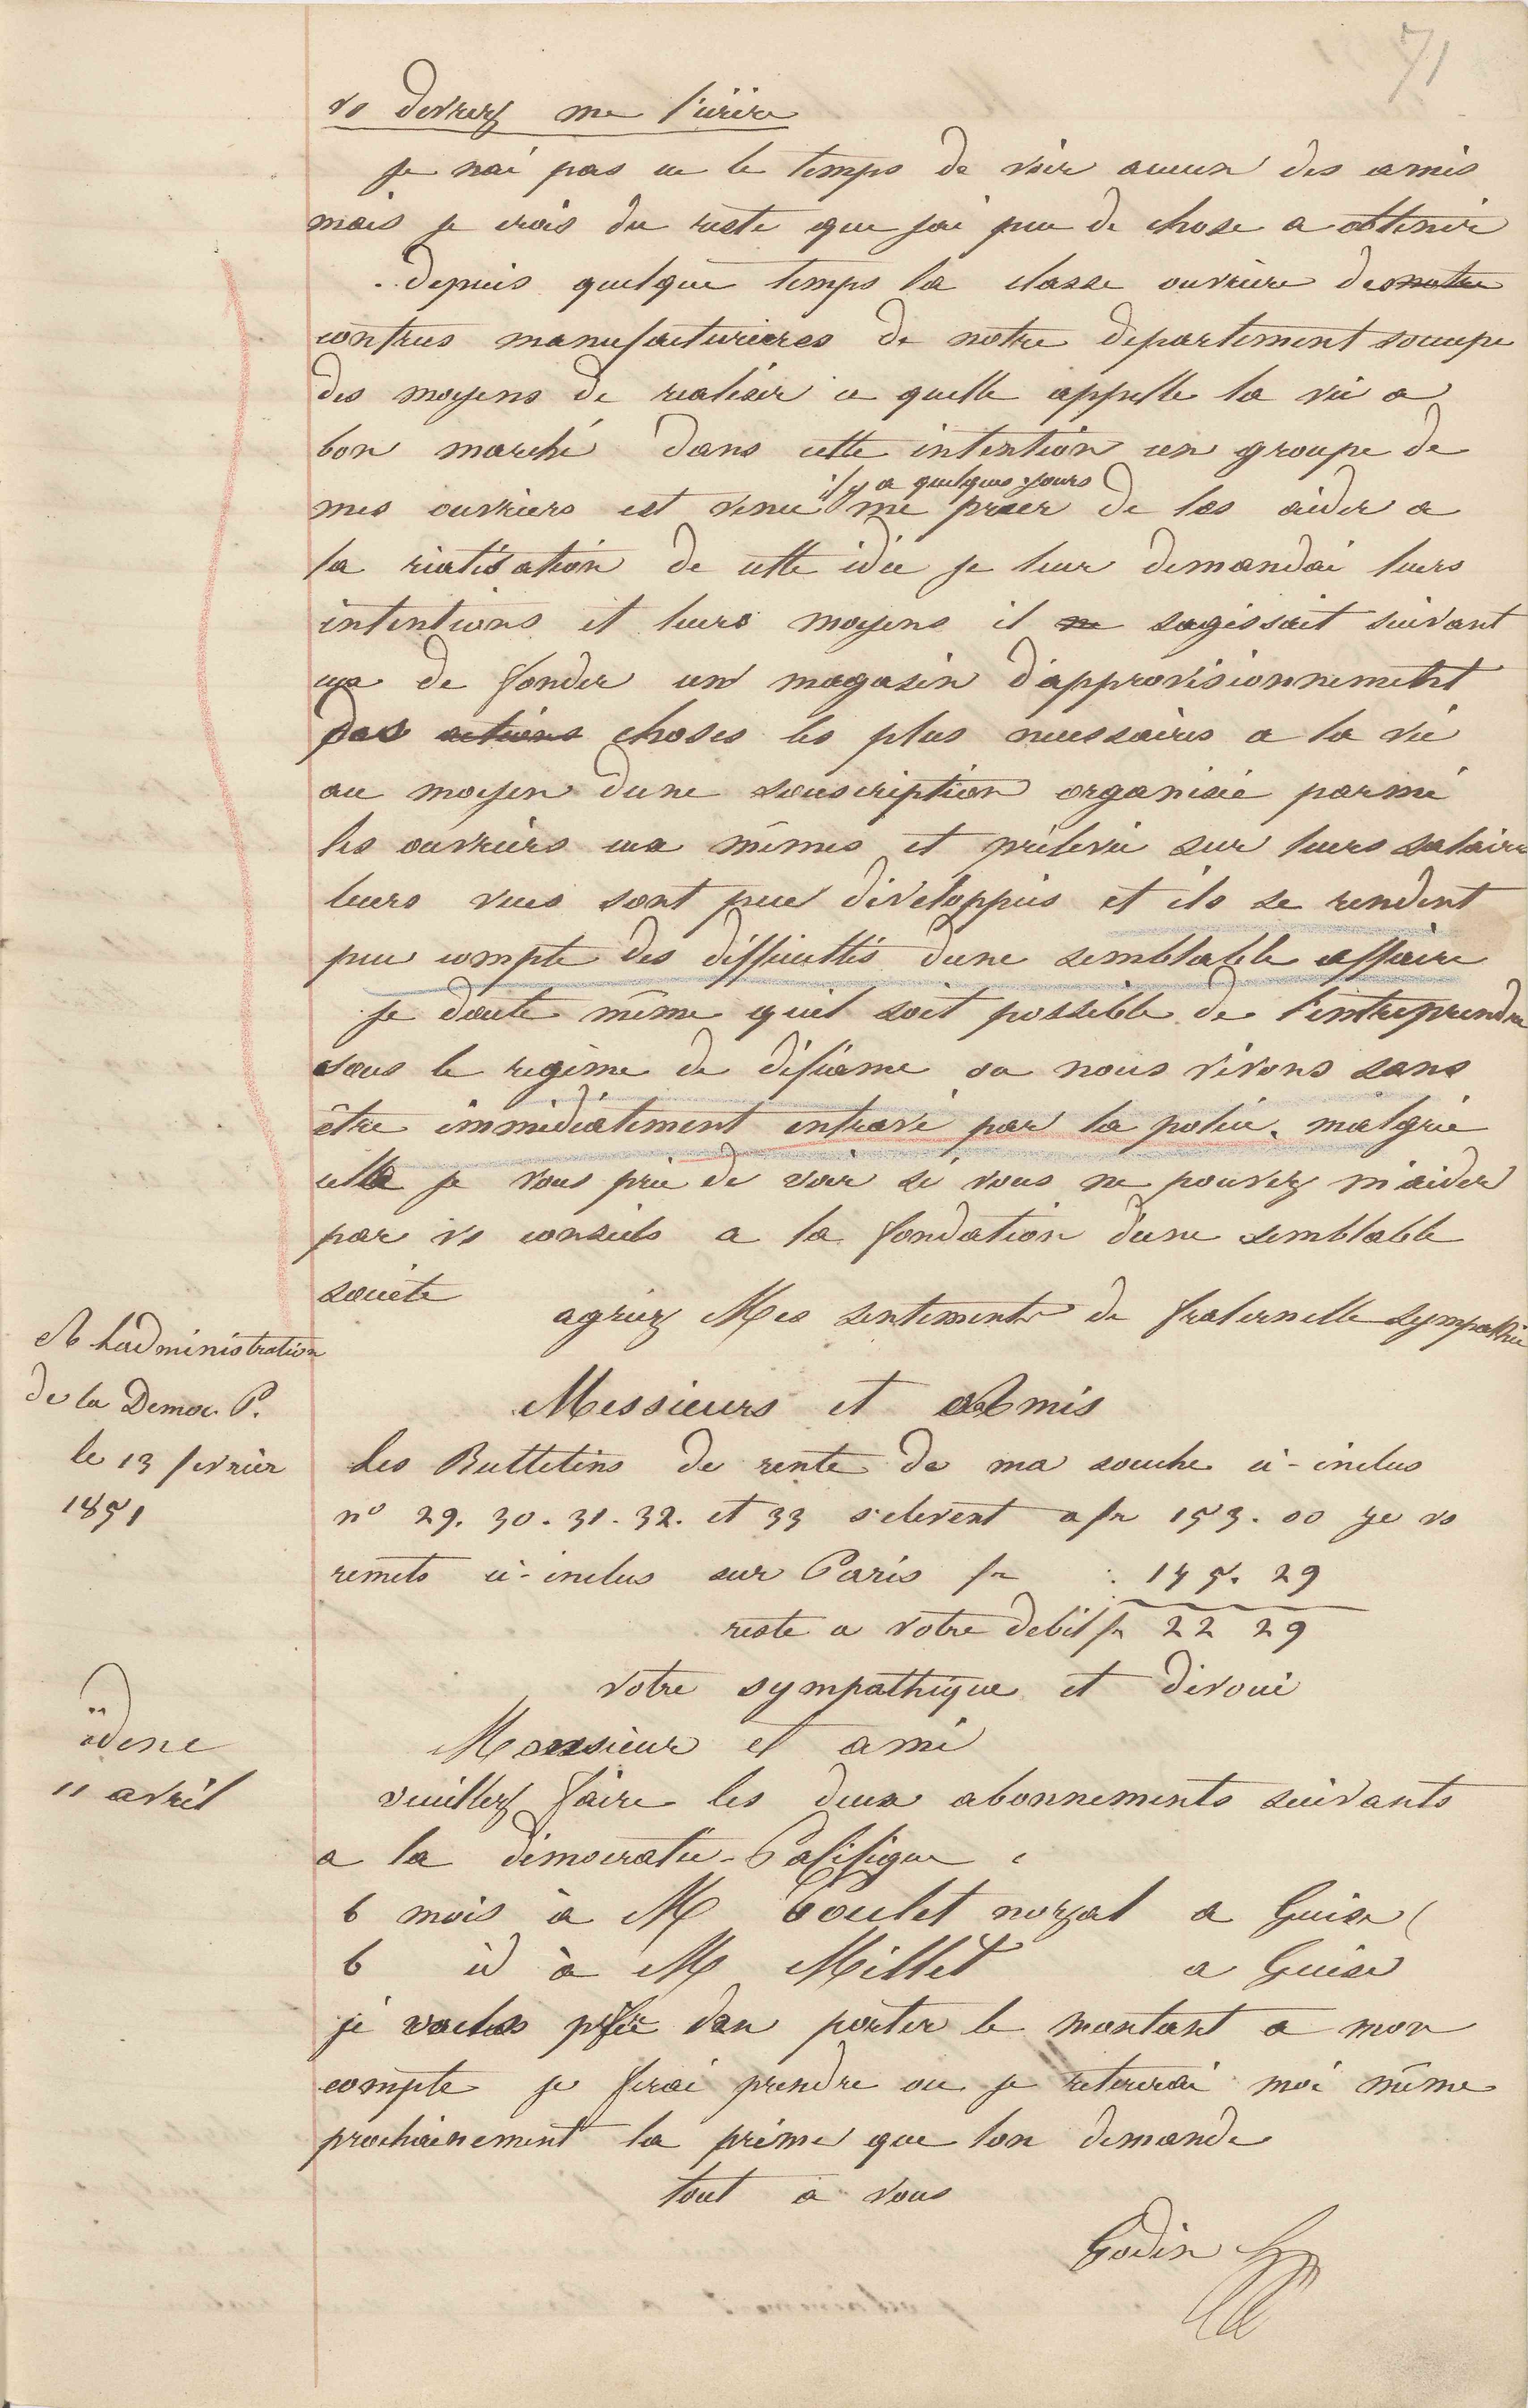 71
vs devrez me l'ecrire
je nai pas eu le temps de voir aucun des amis
mais je crois du reste que jai peu de chose a obtenir
depuis quelque temps la classe ouvriere des notre
centres manufacturieres de notre departement soccupe
des moyens de realiser ce quelle appelle la vie a
bon marché dans cette intention un groupe de
il y a quelques jours
mes ouvriers est venu me prier de les aider a
la réalisation de cette idée je leur demandai leurs
intentions et leurs moyens il ne sagissait suivant
eux de fonder un magasin d'approvisionnement
des actions choses les plus necessaires a la vie
au moyen dune souscription organisée parmi
les ouvriers eux mêmes et prélevée sur leurs salaires
leurs vues sont peu développées et ils se rendent
peu compte des difficultés dune semblable affaire
je doute même quil soit possible de l'entreprendre
sous le regime de défiance ou nous vivons sans
être immédiatement entravé par la police. malgré
cela je vous prie de voir si vous ne pouvez m'aider
par vs conseils a la fondation dune semblable
société
agréez Mes sentiments de fraternelle sympathie
A Ladministration
de la Democ. P.
le 13 fevrier
1851
Messieurs et Amis
Les Bulletins de rente de ma souche ci-inclus
n° 29. 30. 31. 32. et 33 s'elevent a fr 153.00 je vs
remets ci-inclus sur Paris fr 175. 29
reste a votre debit fr 22 29
votre sympathique et dévoué
idem
11 avril
Monsieur et ami
veuillez faire les deux abonnements suivants
a la démocratie-Pacifique
6 mois à M Poulet norzal a Guise
6 id à M Millet a Guise
je vous prie den porter le montant a mon
compte je ferai prendre ou je retirerai moi même
prochainement la prime que lon demande
tout à vous
Godin